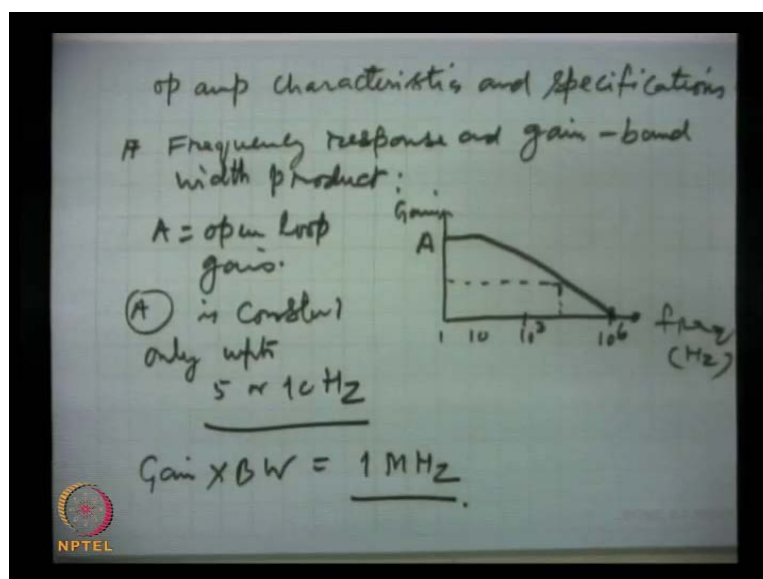 op amp characteristics and specifications
# Frequency response and gain-band
width product:
A = open loop
gain.
A is constant
only upto
5 or 10 Hz
Gain
A
1 10 10³ 10⁶
freq
(Hz)
Gain X BW = 1 MHz.
NPTEL